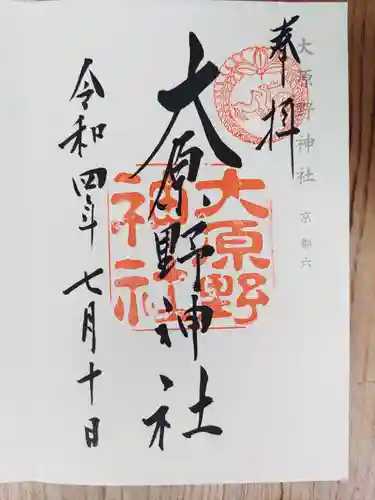 大原野神社 京都六
奉拝
大原野神社
大原野神社
令和四年七月十日